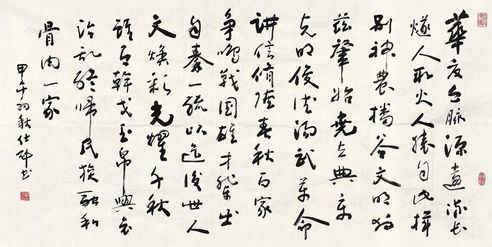 華夏血脉源遠流長
燧人取火人猿自此揖
别神農播谷文明於
兹肇始堯之典章
克明俊德湯武革命
講信脩睦春秋百家
争鳴戰國雄才輩出
自秦一統以迄後世人
文焕彩光耀千秋
雖有幹戈玉帛興衰
治亂終歸民族融和
骨肉一家
甲午初秋仕书